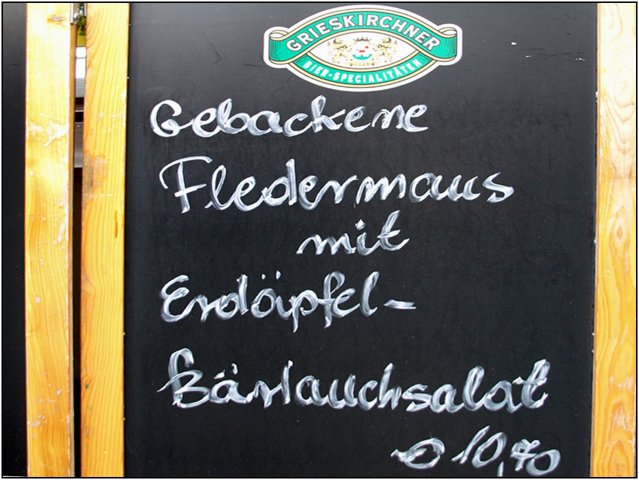 GRIESKIRCHNER
BIER-SPECIALITÄTEN
Gebackene
Fledermaus
mit
Erdäpfel-
Bärlauchsalat
10,70